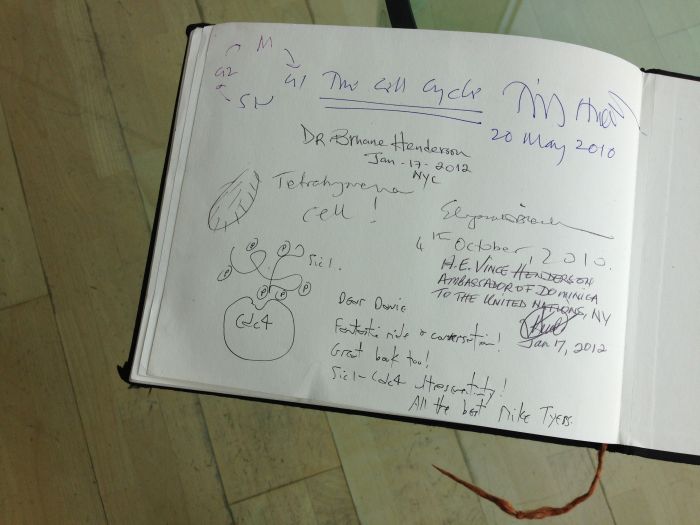 M
G2
G1
The Cell Cycle
Tim Hunt
20 May 2010
DR Brhane Henderson
Jan-17-2012
NYC
Tetrahymena
cell!
4th October, 2010.
H.E. VINCE HENDERSON
AMBASSADOR OF DOMINICA
TO THE UNITED NATIONS, NY
Jan 17, 2012
P P
Sic1.
P P
P P
Cdc4
Dear
Fantastic ride & conversation!
Great book too!
Sic1-Cdc4 Ultrasensitivity!
All the best Mike Tyers.